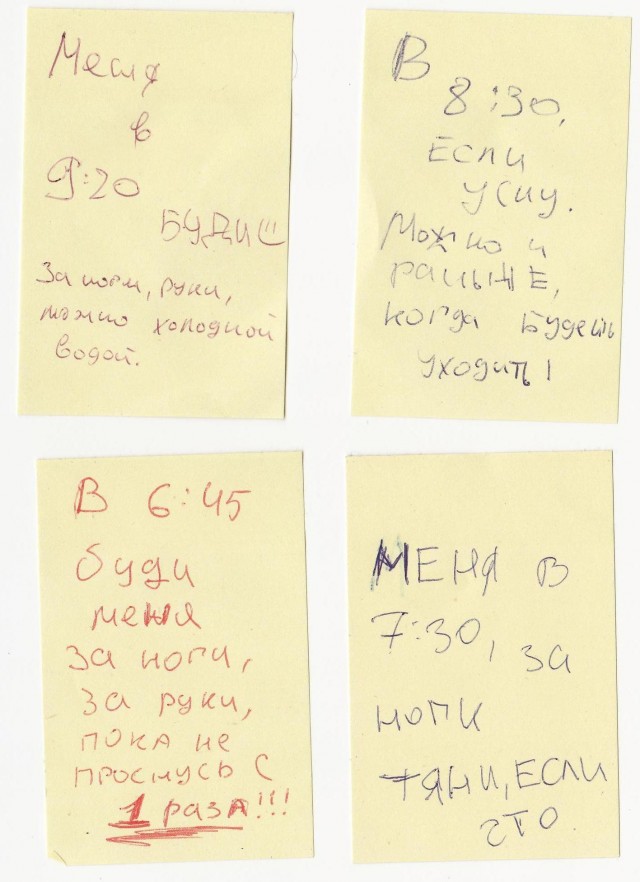 Меня
в
9:20
БУДИ!!
За ноги, руки,
можно холодной
водой.
В
8:30,
Если
усну.
Можно и
раньшЕ,
когда Будешь
уходить!
В 6:45
буди
меня
за ноги,
за руки,
пока не
проснусь с
1 раза!!!
МЕНЯ В
7:30, за
ноги
тяни, если
что